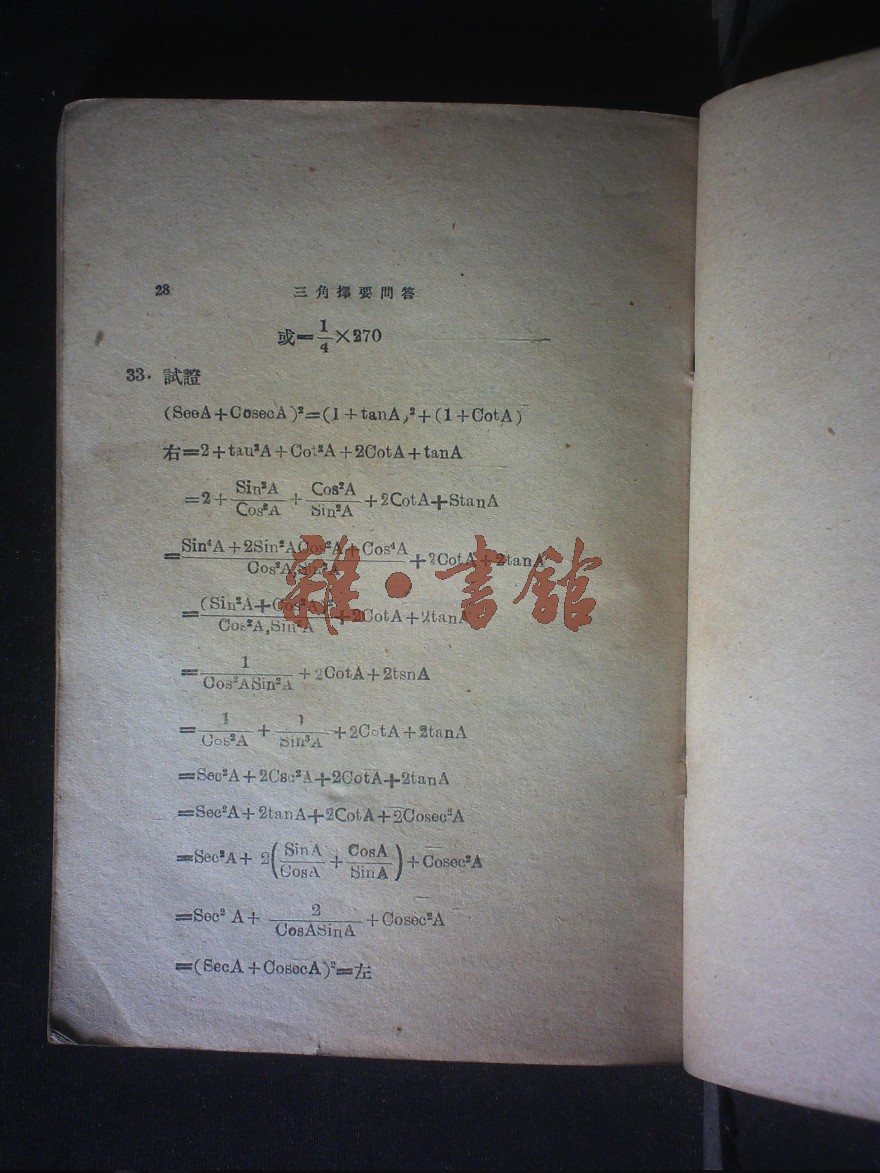 28 三角擇要問答
或=1/4×270
33. 試證
(SeeA+CosecA)²=(1+tanA)²+(1+CotA)
右=2+tau²A+Cot²A+2CotA+tanA
=2+Sin²A/Cos²A+Cos²A/Sin²A+2CotA+StanA
=Sin⁴A+2Sin²ACos²A+Cos⁴A/Cos²A,Sin²A+2CotA+2tanA
=(Sin²A+Cos²A)²/Cos²A,Sin²A+2CotA+2tanA
=1/Cos²ASin²A+2CotA+2tsnA
=1/Cos²A+1/Sin²A+2CotA+2tanA
=Sec²A+2Csc²A+2CotA+2tanA
=Sec²A+2tanA+2CotA+2Cosec²A
=Sec²A+2(SinA/CosA+CosA/SinA)+Cosec²A
=Sec²A+2/CosASinA+Cosec²A
=(SecA+CosecA)²=左
雜·書館